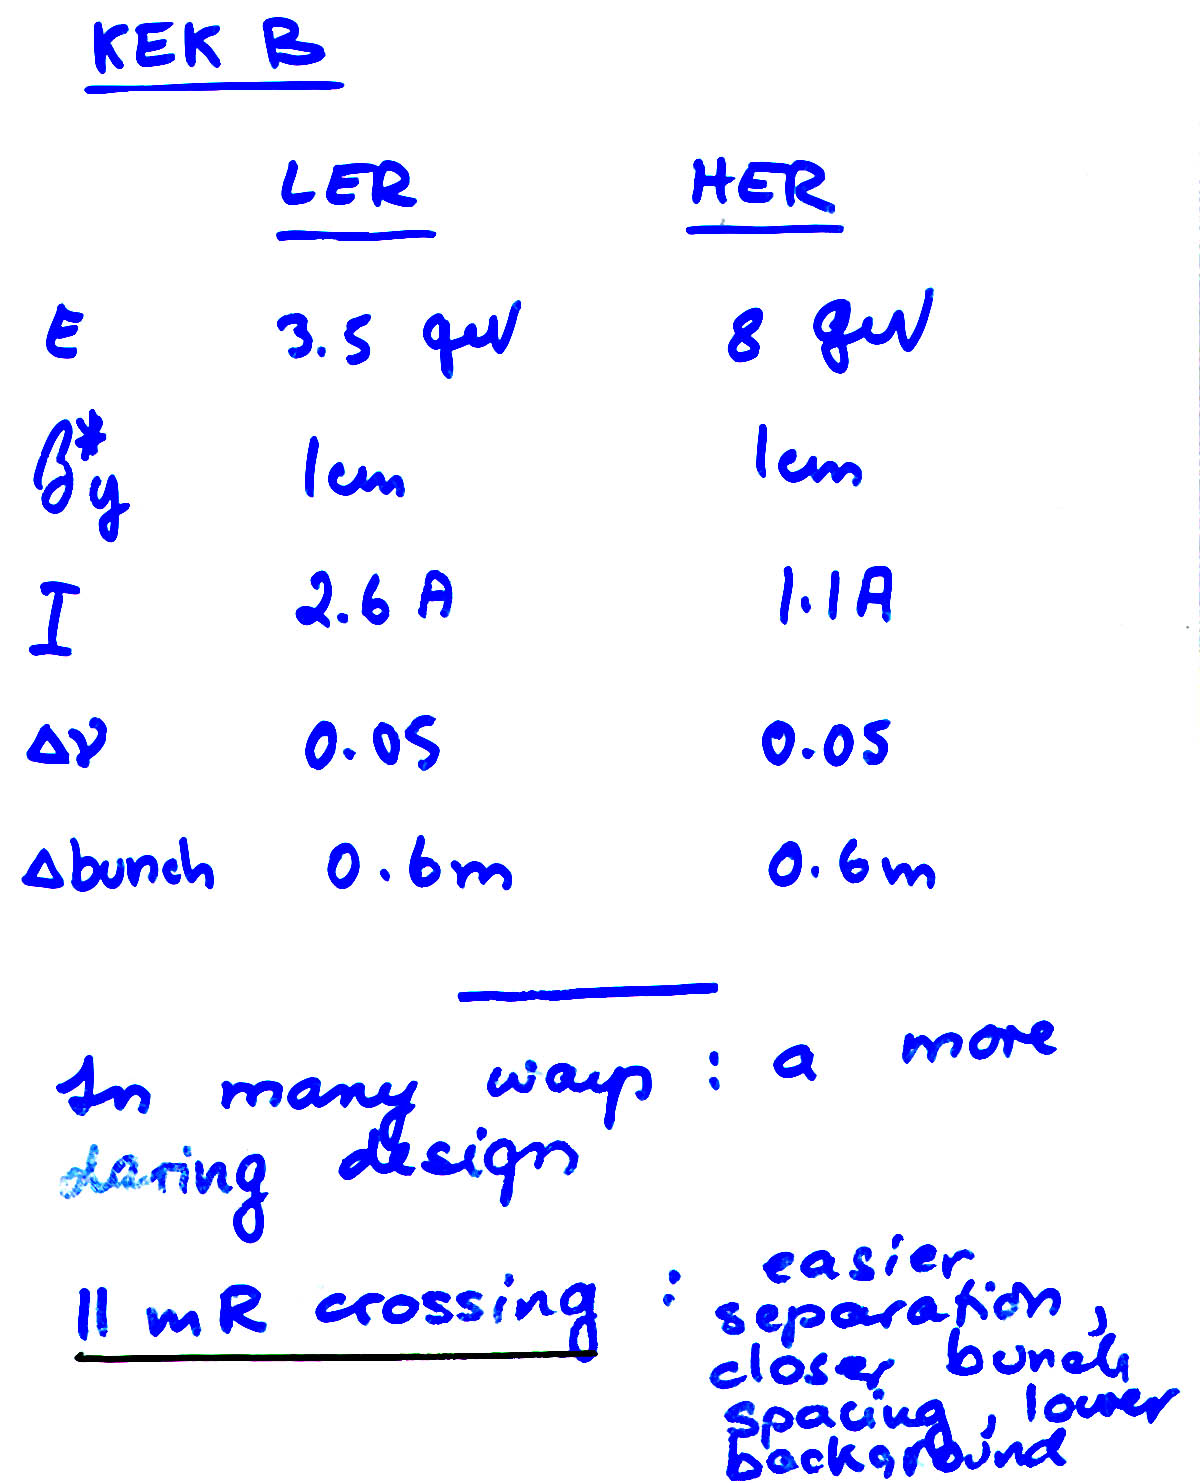 KEK B
LER HER
E 3.5 GeV 8 GeV
β*y 1cm 1cm
I 2.6 A 1.1A
Δν 0.05 0.05
Δbunch 0.6m 0.6m
In many ways : a more
daring design
11 mR crossing : easier
separation,
closer bunch
spacing, lower
background